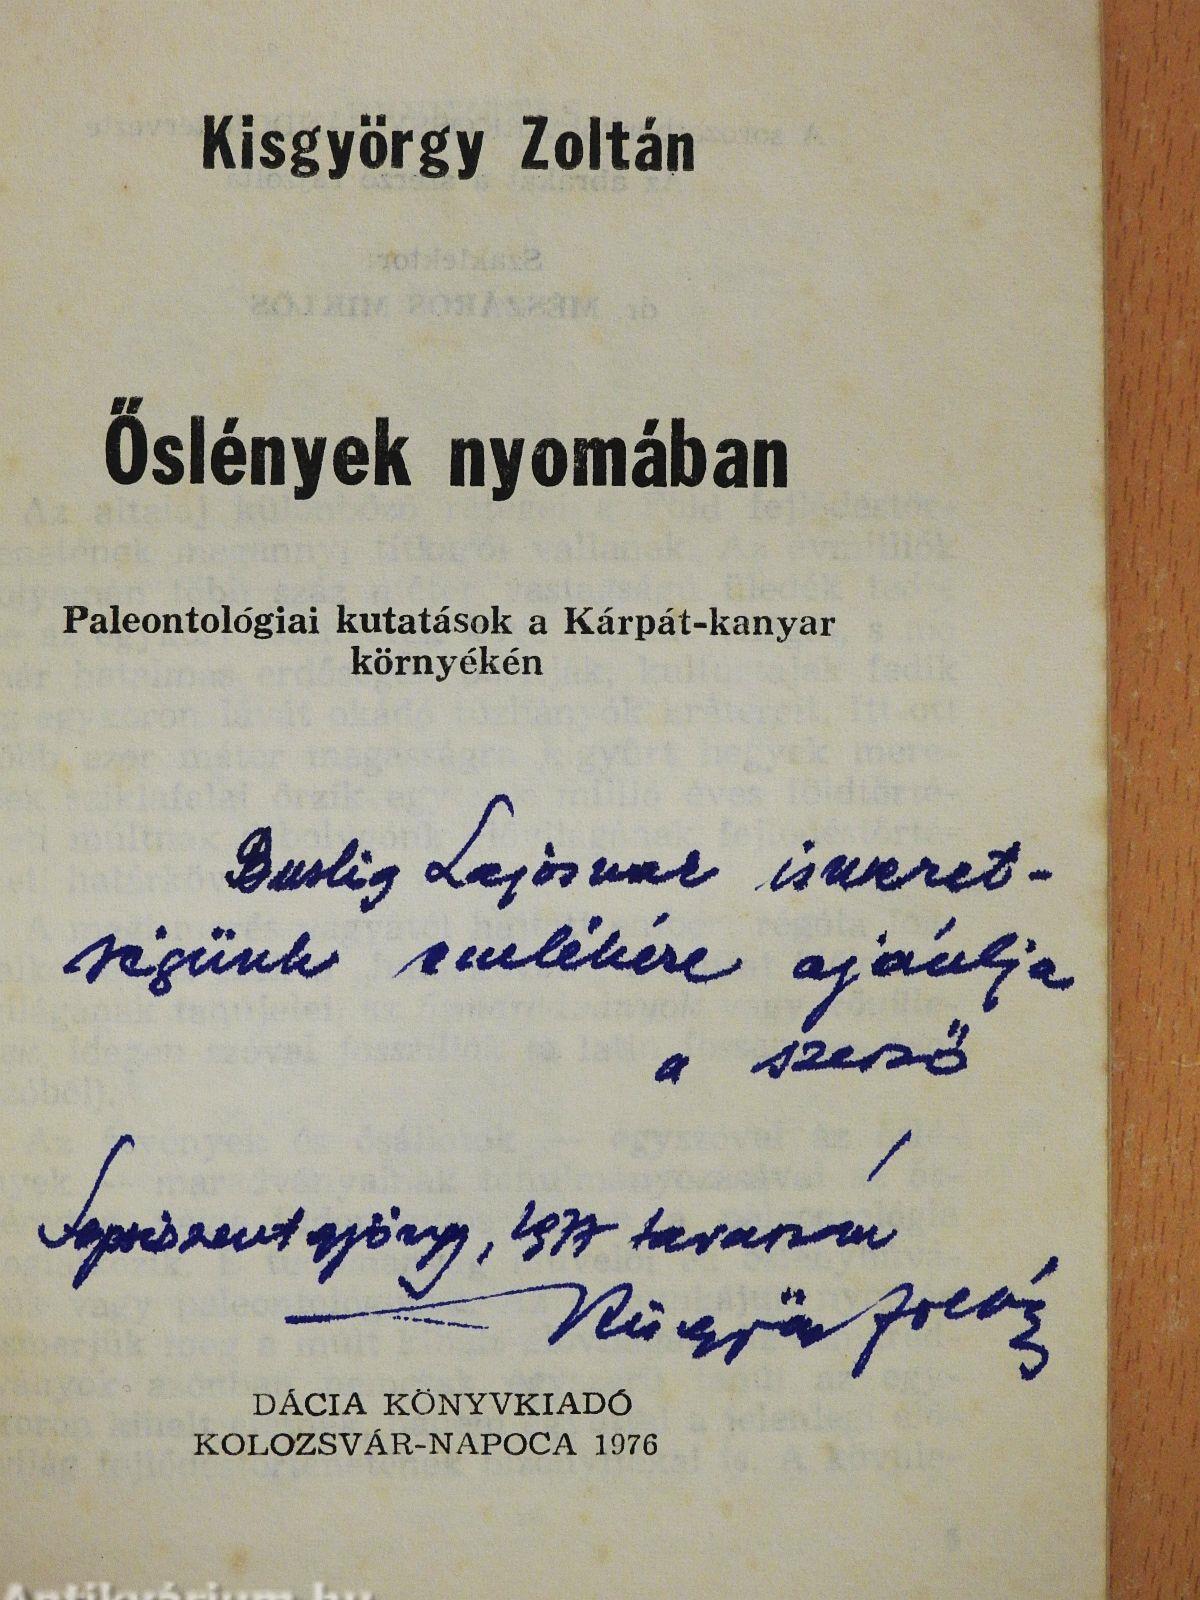 Kisgyörgy Zoltán
Őslények nyomában
Paleontológiai kutatások a Kárpát-kanyar
környékén
Buslig Lajosnak ismeret-
ségünk emlékére ajánlja
a szerző
Sepsiszentgyörgy, 1977 tavaszán
Kisgyör Zoltán
DÁCIA KÖNYVKIADÓ
KOLOZSVÁR-NAPOCA 1976
Antikvárium.hu